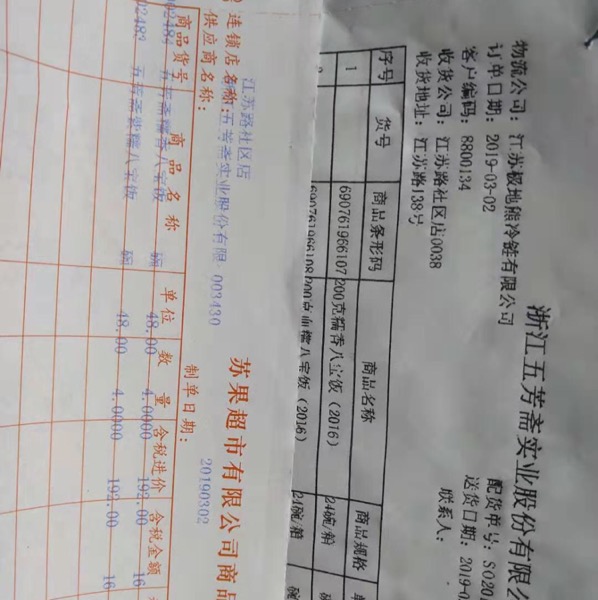 浙江五芳斋实业股份有限公
物流公司：江苏极地熊冷链有限公司 配货单号：SO201
订单日期：2019-03-02 送货日期：2019-0
客户编码：8800134 联系人：
收货公司：江苏路社区店0038
收货地址：江苏路138号
序号 货号 商品条形码 商品名称 商品规格
1 690761966107 200克糯香八宝饭（2016） 24碗/箱 碗
690761966108 八宝饭（2016） 24碗/箱 碗
苏果超市有限公司商品
制单日期：20190302
连锁店名称： 江苏路社区店
供应商名称： 五芳斋实业股份有限 003430
商品货号 商品名称 单位 数量 含税进价 含税金额
02484 五芳斋 八宝饭 碗 48.00 4.0000 192.00 16
02483 五芳斋紫糯八宝饭 碗 48.00 4.0000 192.00 16